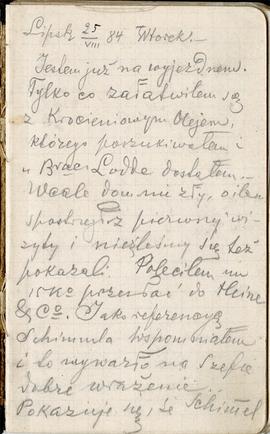 Lipsk 25/VIII 84 Wtorek.—
Jestem już na wyjezdnem.
Tylko co załatwiłem się
z Krocieniowym Olejem,
którego poszukiwałem i
u Braci Lodde dostałem.—
Wcale dom nie zły, o ile
spostrzegł z pierwszej wi-
zyty i nieźleśmy się też
pokazali. Poleciłem mu
15 Ko przesłać do Heine
& Co. Jako referencyą
Schimmla wspomniałem
i to wywarło na Szefie
dobre wrażenie.
Pokazuje się, że Schimmel